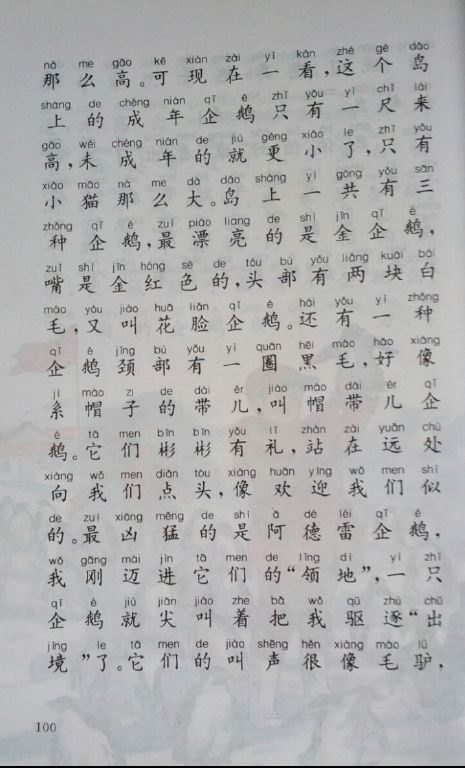 nà me gāo kě xiàn zài yí kàn zhè gè dǎo
那么高。可现在一看,这个岛
shàng de chéng nián qǐ é zhǐ yǒu yì chǐ lái
上的成年企鹅只有一尺来
gāo wèi chéng nián de jiù gèng xiǎo le zhǐ yǒu
高,未成年的就更小了,只有
xiǎo māo nà me dà dǎo shàng yí gòng yǒu sān
小猫那么大。岛上一共有三
zhǒng qǐ é zuì piào liang de shì jīn qǐ é
种企鹅,最漂亮的是金企鹅,
zuǐ shì jīn hóng sè de tóu bù yǒu liǎng kuài bái
嘴是金红色的,头部有两块白
máo yòu jiào huā liǎn qǐ é hái yǒu yì zhǒng
毛,又叫花脸企鹅。还有一种
qǐ é jǐng bù yǒu yì quān hēi máo hǎo xiàng
企鹅颈部有一圈黑毛,好像
jì mào zi de dài ér jiào mào dài ér qǐ
系帽子的带儿,叫帽带儿企
é tā men bīn bīn yǒu lǐ zhàn zài yuǎn chù
鹅。它们彬彬有礼,站在远处
xiàng wǒ men diǎn tóu xiàng huān yíng wǒ men shì
向我们点头,像欢迎我们似
de zuì xiōng měng de shì ā dé léi qǐ é
的。最凶猛的是阿德雷企鹅,
wǒ gāng mài jìn tā men de lǐng dì yì zhī
我刚迈进它们的“领地”,一只
qǐ é jiù jiān jiào zhe bǎ wǒ qū zhú chū
企鹅就尖叫着把我驱逐“出
jìng le tā men de jiào shēng hěn xiàng máo lǘ
境”了。它们的叫声很像毛驴,
100